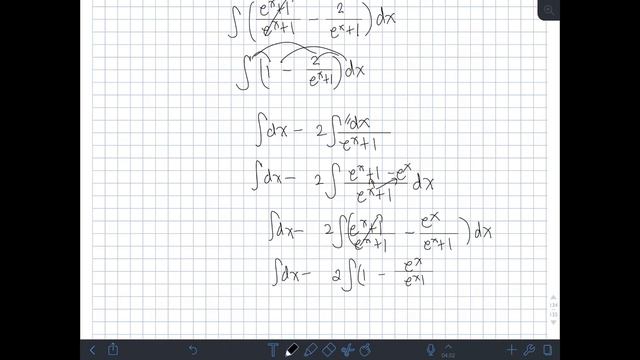 ∫(e^x+1/e^x+1 − 2/e^x+1)dx
∫(1 − 2/e^x+1)dx
∫dx − 2∫1dx/e^x+1
∫dx − 2∫e^x+1−e^x/e^x+1 dx
∫dx − 2∫(e^x+1/e^x+1 − e^x/e^x+1)dx
∫dx − 2∫(1 − e^x/e^x1
134
135
04:02